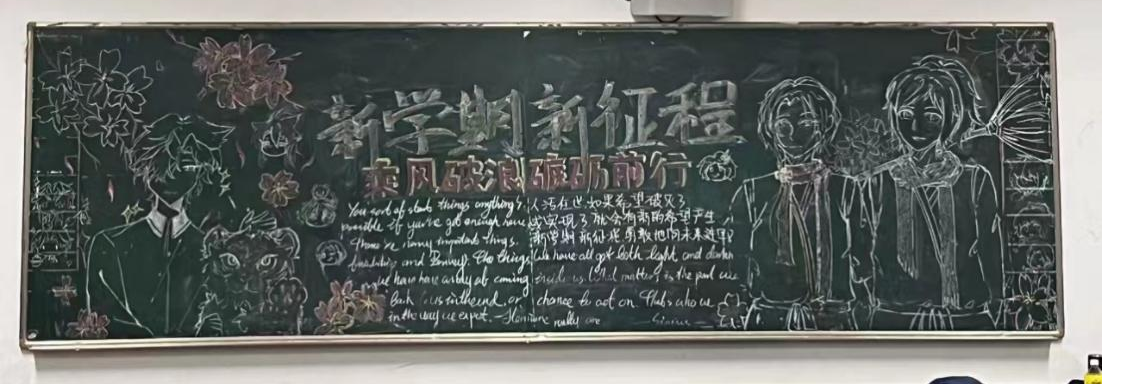 新学期新征程
乘风破浪砥砺前行
You sort of start things anything's
possible if you've got enough nerve
There're many important things.
friendship and Bravery. The things
we have have a way of coming
Back to us in the end, or
in the way we expect. - Hermione
人活在世如果希望破灭了
或实现了就会有新的希望产生
新学期新征程勇敢地向未来进军
We have all got both light and darkness
inside us. What matters is the part we
chance to act on. That's who we
really are
Sirius